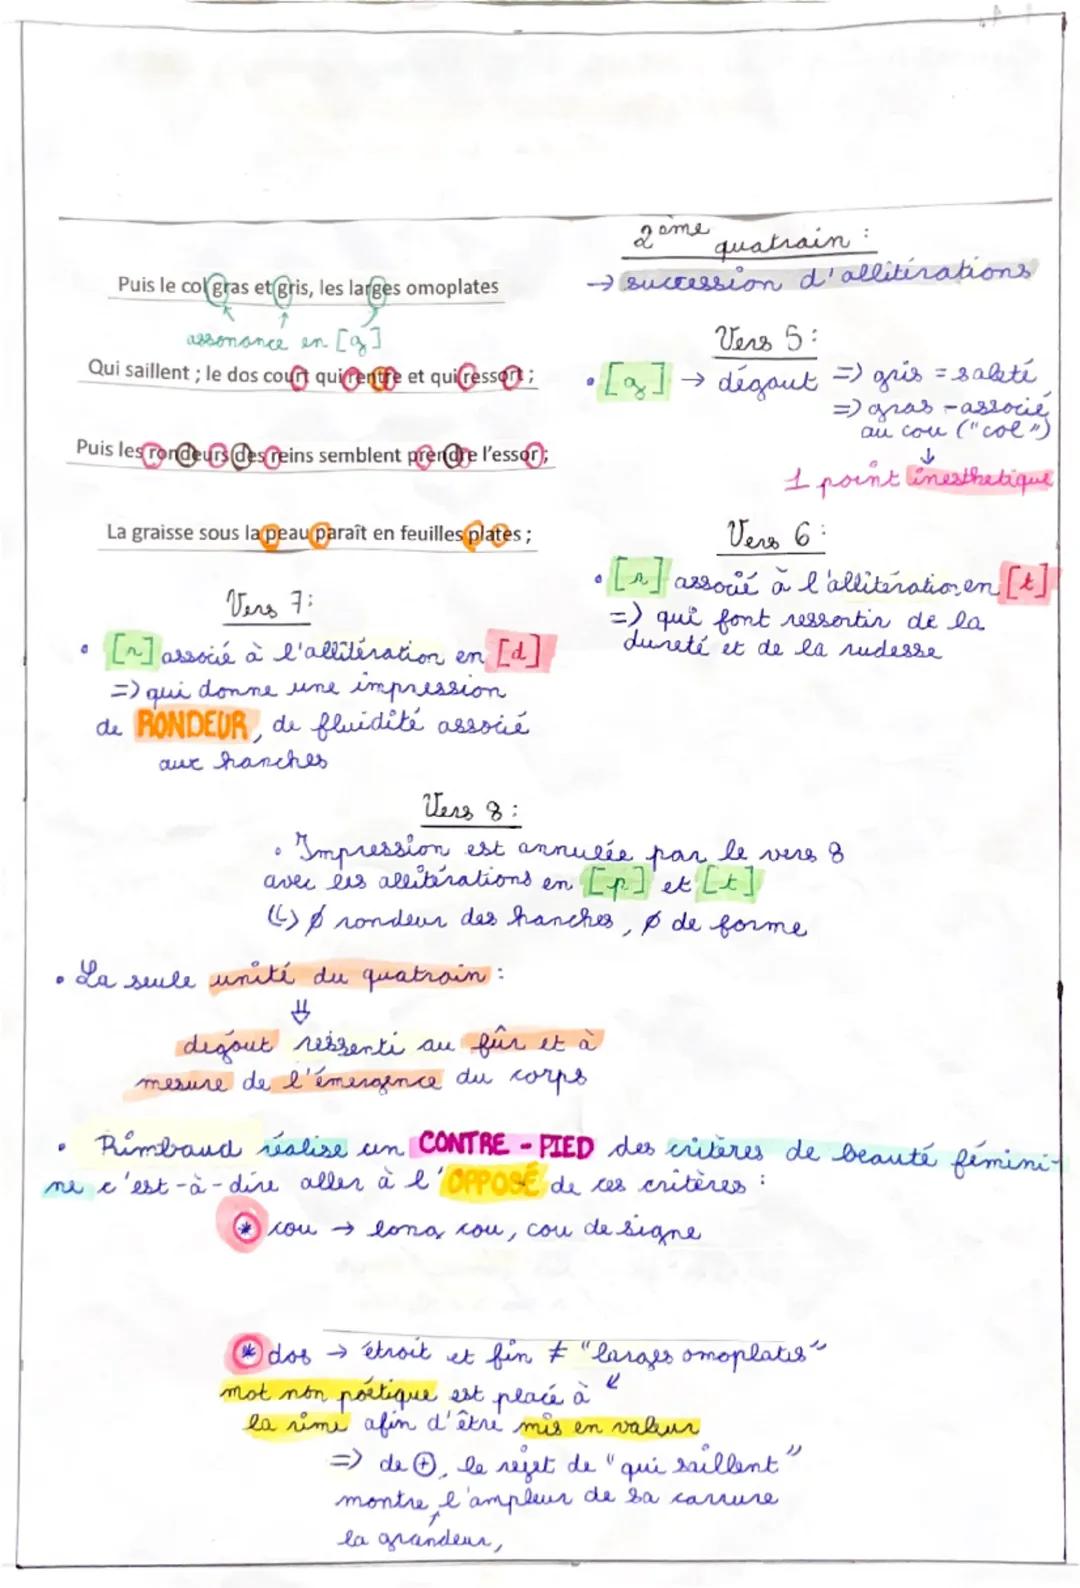 2ème quatrain :
→ succession d'allitérations
Puis le col gras et gris, les larges omoplates
assonance en [g]
Qui saillent ; le dos court qui rentre et qui ressort ;
Puis les rondeurs des reins semblent prendre l'essor ;
La graisse sous la peau paraît en feuilles plates ;
Vers 5 :
• [g] → dégout => gris = saleté
=> gras - associé
au cou ("col")
↓
1 point inesthetique
Vers 6 :
• [r] associé à l'allitération en [t]
=> qui font ressortir de la
dureté et de la rudesse
Vers 7 :
• [r] associé à l'allitération en [d]
=> qui donne une impression
de RONDEUR, de fluidité associé
aux hanches
Vers 8 :
• Impression est annulée par le vers 8
avec les allitérations en [p] et [t]
(↳) ∅ rondeur des hanches, ∅ de forme
• La seule unité du quatrain :
⇓
degout ressenti au fûr et à
mesure de l'émergence du corps
• Rimbaud réalise un CONTRE - PIED des critères de beauté fémini-
ne c'est-à-dire aller à l'OPPOSÉ de ces critères :
* cou → long cou, cou de signe
* dos → étroit et fin ≠ "larges omoplates"
mot non poétique est placé à ↙
la rime afin d'être mis en valeur
=> de ⊕, le rejet de "qui saillent"
montre l'ampleur de sa carrure
la grandeur,